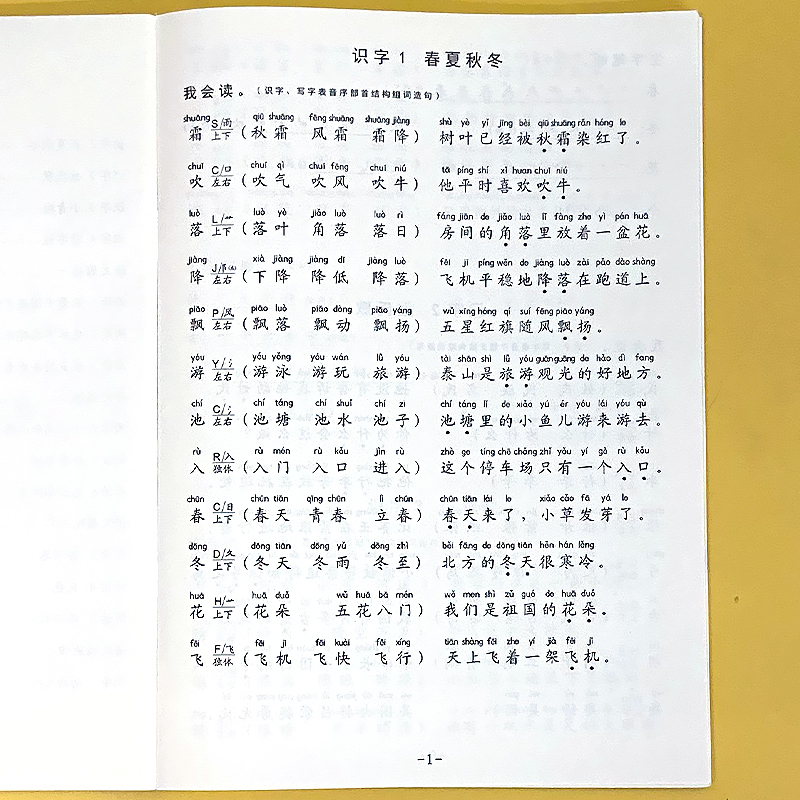 识字1 春夏秋冬
我会读。（识字、写字表音序部首结构组词造句）
shuāng qiū shuāng fēng shuāng shuāng jiàng shù yè yǐ jīng bèi qiū shuāng rǎn hóng le
霜 S/雨 上下（秋霜 风霜 霜降）树叶已经被秋霜染红了。
chuī chuī qì chuī fēng chuī niú tā píng shí xǐ huan chuī niú
吹 C/口 左右（吹气 吹风 吹牛）他平时喜欢吹牛。
luò luò yè jiǎo luò luò rì fáng jiān de jiǎo luò lǐ fàng zhe yì pén huā
落 L/艹 上下（落叶 角落 落日）房间的角落里放着一盆花。
jiàng xià jiàng jiàng dī jiàng luò fēi jī píng wěn de jiàng luò zài pǎo dào shàng
降 J/阝(左) 左右（下降 降低 降落）飞机平稳地降落在跑道上。
piāo piāo luò piāo dòng piāo yáng wǔ xīng hóng qí suí fēng piāo yáng
飘 P/风 左右（飘落 飘动 飘扬）五星红旗随风飘扬。
yóu yóu yǒng yóu wán lǚ yóu tài shān shì lǚ yóu guān guāng de hǎo dì fang
游 Y/氵 左右（游泳 游玩 旅游）泰山是旅游观光的好地方。
chí chí táng chí shuǐ chí zi chí táng lǐ de xiǎo yú ér yóu lái yóu qù
池 C/氵 左右（池塘 池水 池子）池塘里的小鱼儿游来游去。
rù rù mén rù kǒu jìn rù zhè ge tíng chē chǎng zhǐ yǒu yí gè rù kǒu
入 R/入 独体（入门 入口 进入）这个停车场只有一个入口。
chūn chūn tiān qīng chūn lì chūn chūn tiān lái le xiǎo cǎo fā yá le
春 C/日 上下（春天 青春 立春）春天来了，小草发芽了。
dōng dōng tiān dōng yǔ dōng zhì běi fāng de dōng tiān hěn hán lěng
冬 D/夂 上下（冬天 冬雨 冬至）北方的冬天很寒冷。
huā huā duǒ wǔ huā bā mén wǒ men shì zǔ guó de huā duǒ
花 H/艹 上下（花朵 五花八门）我们是祖国的花朵。
fēi fēi jī fēi kuài fēi xíng tiān shàng fēi zhe yí jià fēi jī
飞 F/飞 独体（飞机 飞快 飞行）天上飞着一架飞机。
-1-